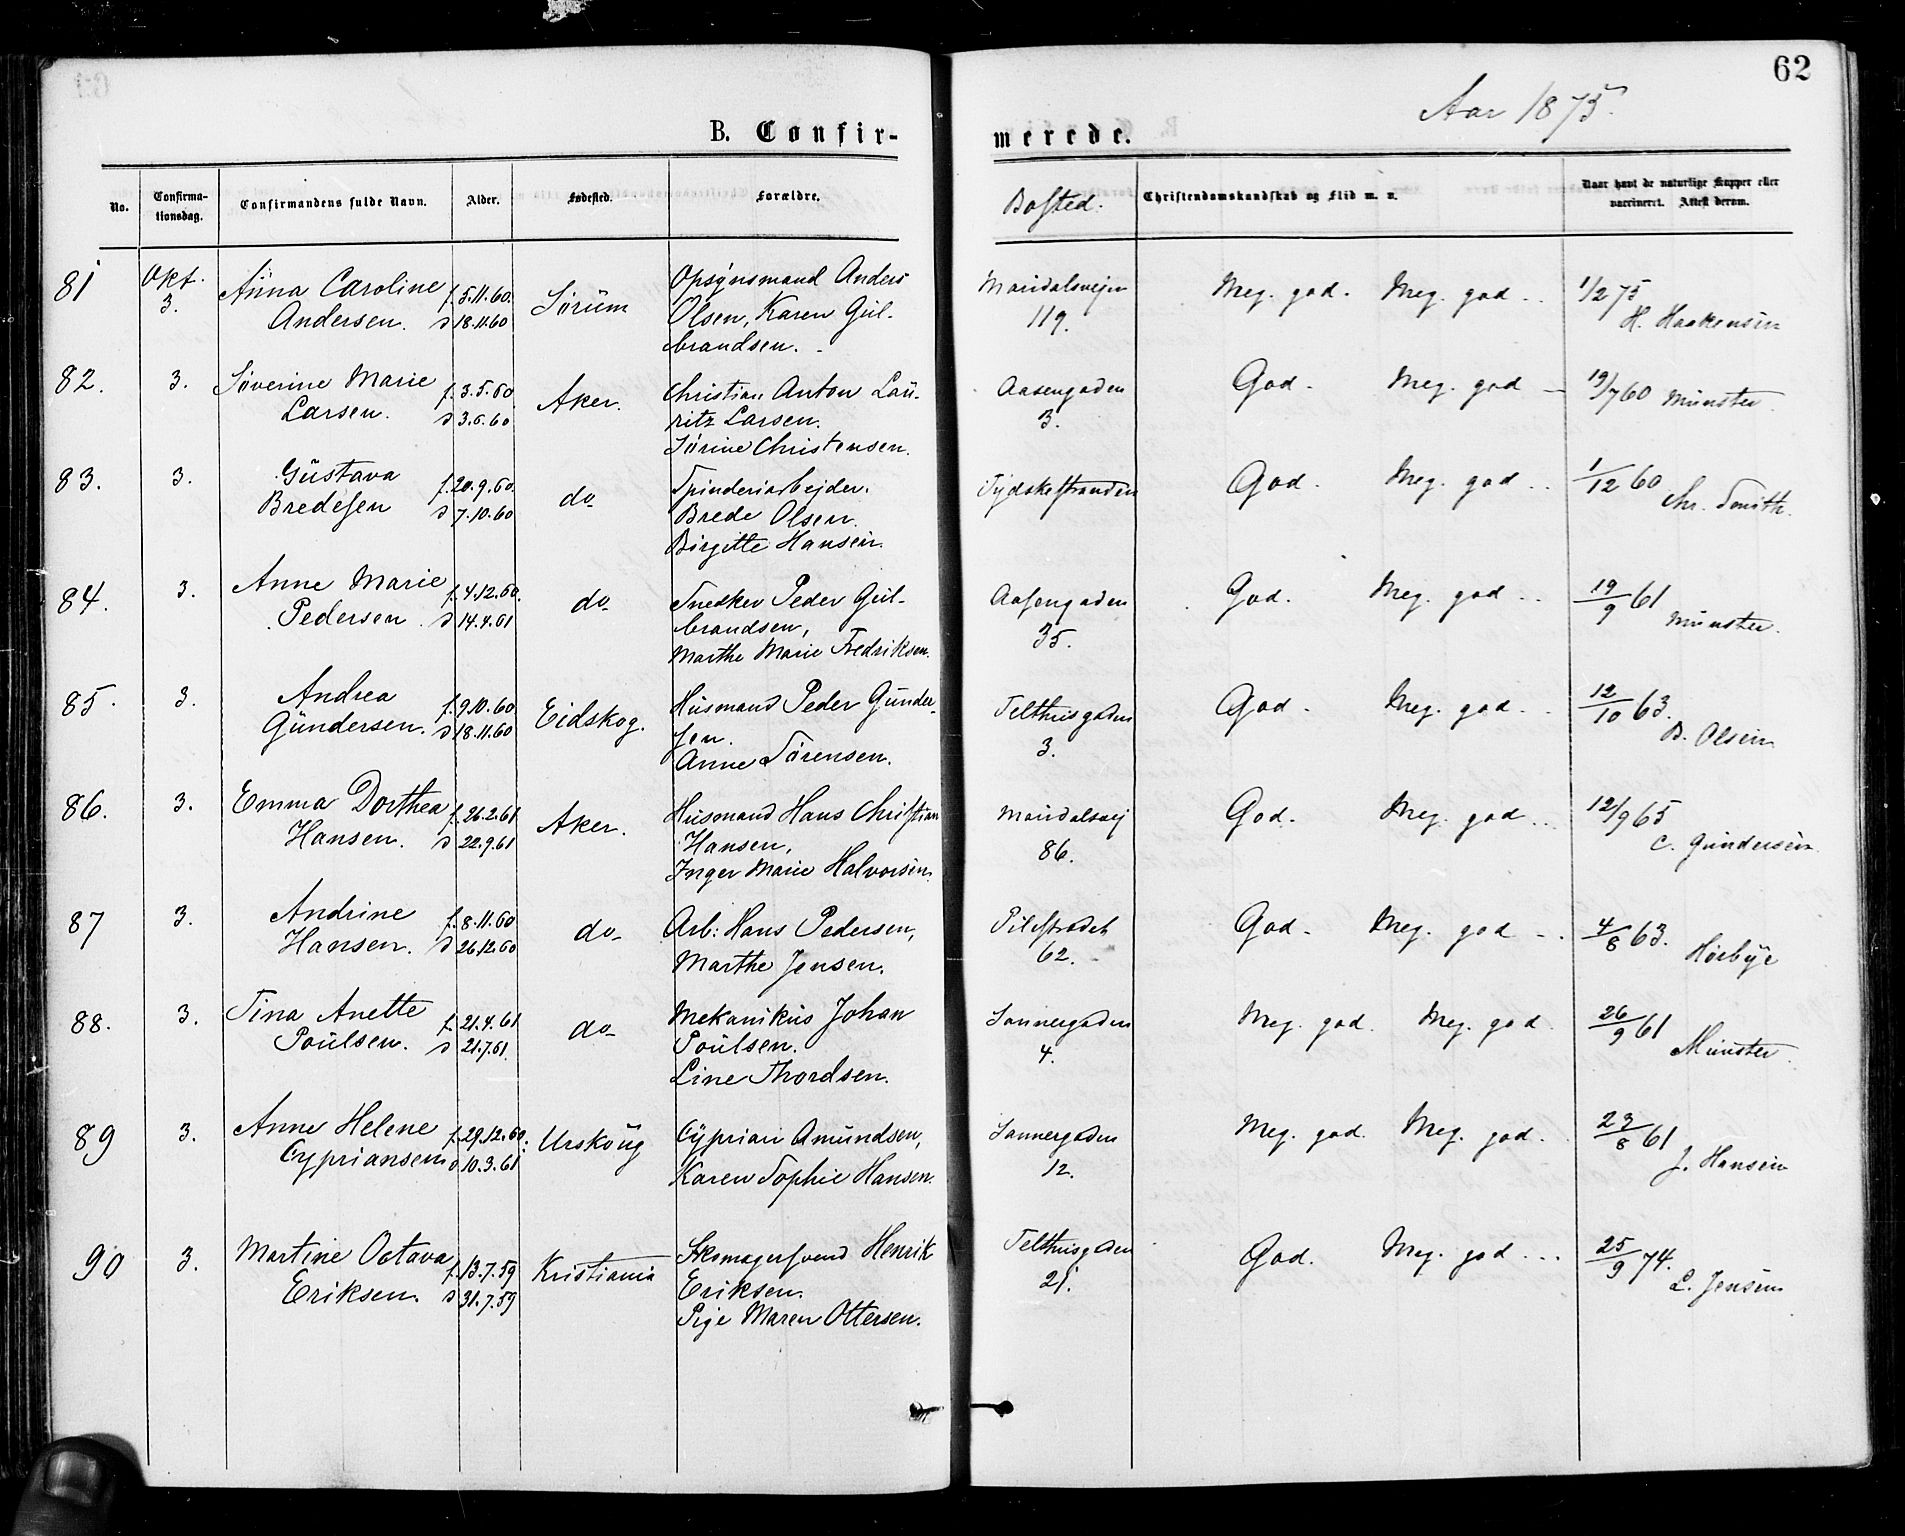 62
Aar 1875.
B. Confir-
merede.
No.
Confirma-
tionsdag.
Confirmandens fulde Navn.
Alder.
Fødested.
Forældre.
Bosted.
Christendomskundskab og Flid m. v.
Naar havt de naturlige Kopper eller
vaccineret. Attest derom.
81 Okt. 3. Anna Caroline f. 5.11.60. Sörum Opsynsmand Anders Maridalsvejen Meg. god. Meg. god 1/2 75
Andersen. d 18.11.60 Olsen, Karen Gul- 119. H. Haakensen
brandsen.
82. 3. Søverine Marie f. 3.5.60 Aker. Christian Anton Lau- Aasengaden God. Meg. god 19/7 60 Münster
Larsen. d 3.6.60 ritz Larsen. 3.
Sørine Christensen.
83. 3. Gustava f. 20.9.60. do Spinderiarbejder. Tydskestranden God. Meg. god 1/12 60
Bredesen d 7.10.60 Brede Olsen. Chr. Smith.
Birgitte Hansen.
84. 3. Anne Marie f. 4.12.60. do Snedker Peder Gul- Aasengaden God. Meg. god 19/9 61
Pedersen. d 14.4.61 brandsen, 35. Münster.
Marthe Marie Fredriksen.
85. 3. Andrea f. 9.10.60 Eidskog. Husmand Peder Gunder- Telthusgaden God. Meg. god. 12/10 63.
Gundersen. d 18.11.60 sen. 3. B. Olsen
Anne Sørensen.
86. 3. Emma Dorthea f. 26.2.61 Aker. Husmand Hans Christian Maridalsvej God. Meg. god 12/9 65
Hansen. d 22.9.61 Hansen, 86. C. Gundersen
Inger Marie Halvorsen.
87 3. Andrine f. 8.11.60 do Arb: Hans Pedersen, Pilestrædet God. Meg. god 4/8 63.
Hansen. d 26.12.60 Marthe Jensen. 62. Hørbye
88. 3. Tina Anette f. 21.4.61 do Mekanikus Johan Sannergaden Meg. god. Meg. god. 26/9 61
Poulsen. d 21.7.61. Poulsen. 4. Münster.
Line Thordsen.
89 3. Anne Helene f. 29.12.60. Urskoug Cyprian Amundsen, Sannergaden Meg. god. Meg. god. 23/8 61
Cypriansen d 10.3.61 Karen Sophie Hansen. 12. J. Hansen
90 3. Martine Octava f. 13.7.59 Kristiania Skomagersvend Henrik Telthusgaden God. Meg. god 25/9 74.
Eriksen. d 31.7.59 Eriksen. 21. L. Jensen
Pige Maren Ottersen.